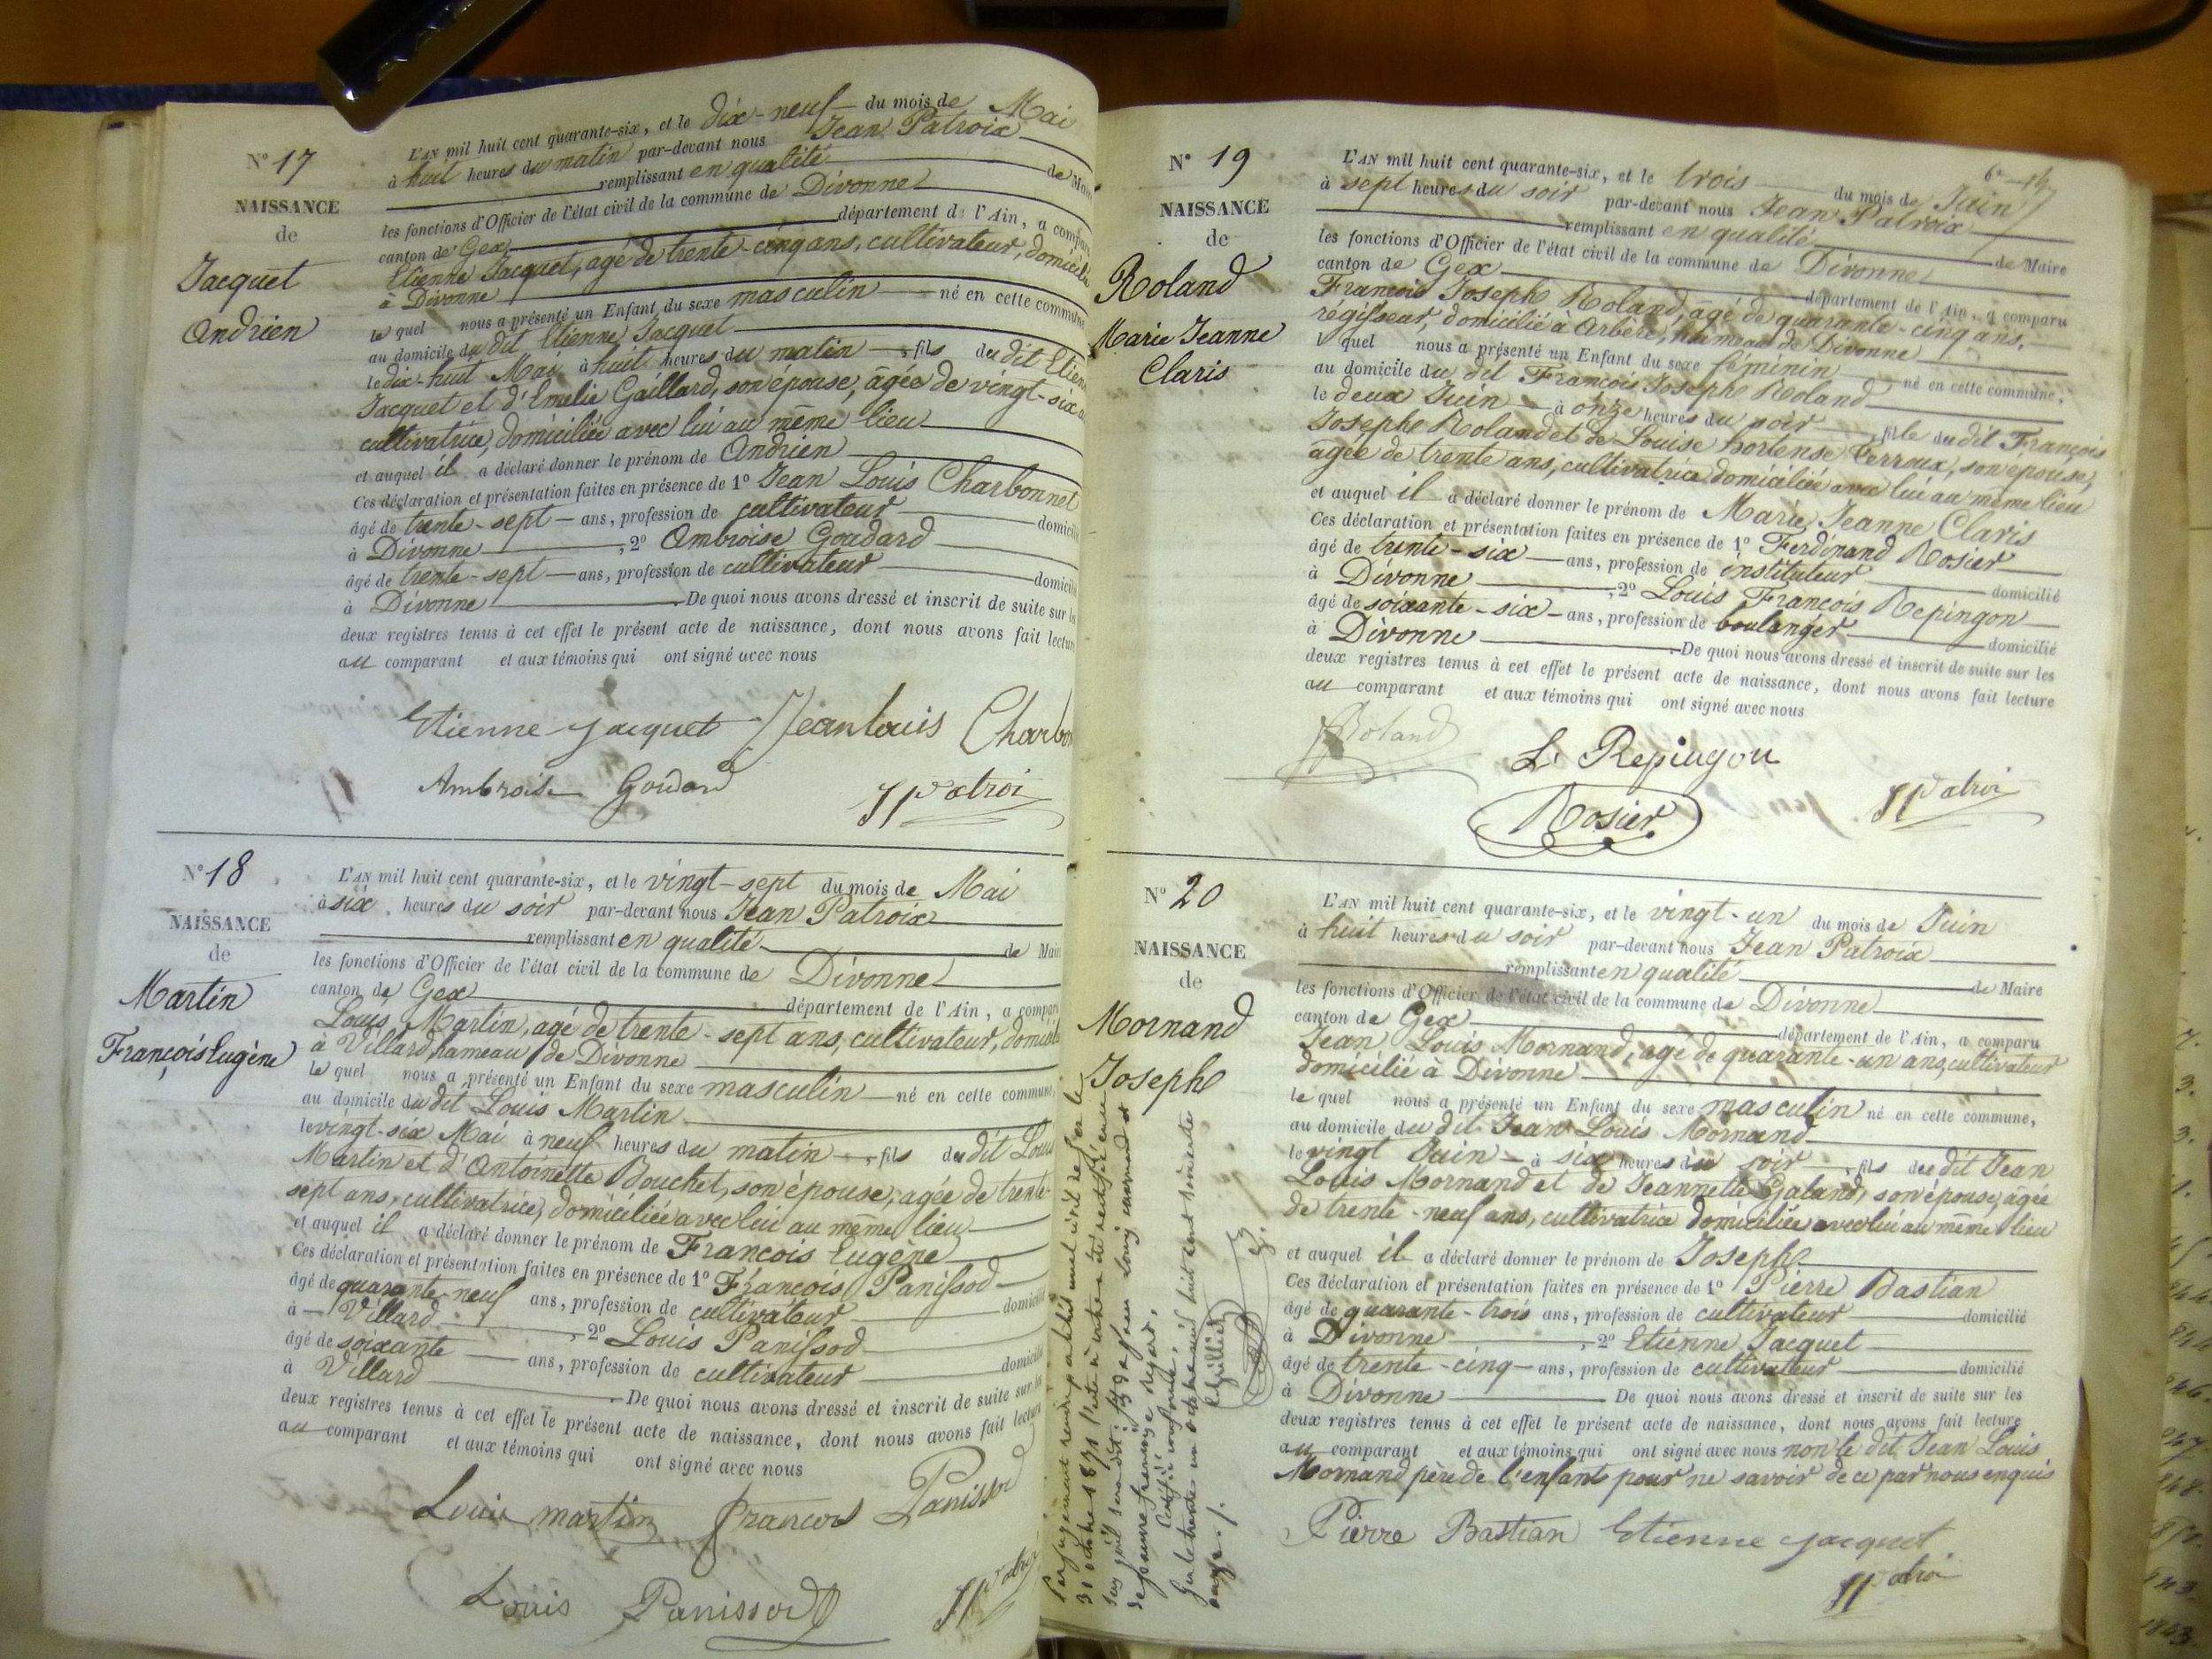 N° 17
NAISSANCE
de
Jacquet
Andrien
L'AN mil huit cent quarante-six, et le dix-neuf du mois de Mai
à huit heures du matin par-devant nous Jean Patroix
remplissant en qualité de Maire
les fonctions d'Officier de l'état civil de la commune de Divonne
canton de Gex département de l'Ain, a comparu
Etienne Jacquet, agé de trente-cinq ans, cultivateur, domicilié
à Divonne
le quel nous a présenté un Enfant du sexe masculin né en cette commune
au domicile du dit Etienne Jacquet
le dix-huit Mai à huit heures du matin, fils du dit Etienne
Jacquet et d'Emelie Gaillard, son épouse, agée de vingt-six
cultivatrice, domiciliée avec lui au même lieu
et auquel il a déclaré donner le prénom de Andrien
Ces déclaration et présentation faites en présence de 1° Jean Louis Charbonnet
âgé de trente-sept ans, profession de cultivateur domicilié
à Divonne, 2° Ambroise Goudard
âgé de trente-sept ans, profession de cultivateur domicilié
à Divonne De quoi nous avons dressé et inscrit de suite sur les
deux registres tenus à cet effet le présent acte de naissance, dont nous avons fait lecture
au comparant et aux témoins qui ont signé avec nous
Etienne Jacquet Jean Louis Charbo
Ambroise Goudard JPatroi
N° 18
NAISSANCE
de
Martin
François Eugène
L'AN mil huit cent quarante-six, et le vingt-sept du mois de Mai
à six heures du soir par-devant nous Jean Patroix
remplissant en qualité de Maire
les fonctions d'Officier de l'état civil de la commune de Divonne
canton de Gex département de l'Ain, a comparu
Louis Martin, agé de trente-sept ans, cultivateur, domicilié
à Villard hameau de Divonne
le quel nous a présenté un Enfant du sexe masculin né en cette commune,
au domicile du dit Louis Martin
le vingt-six Mai à neuf heures du matin, fils du dit Louis
Martin et d'Antoinette Bouchet, son épouse, agée de trente-
sept ans, cultivatrice, domiciliée avec lui au même lieu
et auquel il a déclaré donner le prénom de François Eugène
Ces déclaration et présentation faites en présence de 1° François Panissod
âgé de quarante-neuf ans, profession de cultivateur domicilié
à Villard, 2° Louis Panissod
âgé de soixante ans, profession de cultivateur domicilié
à Villard De quoi nous avons dressé et inscrit de suite sur les
deux registres tenus à cet effet le présent acte de naissance, dont nous avons fait lecture
au comparant et aux témoins qui ont signé avec nous
Louis martin françois Panissod
Louis Panissod JPatroi
N° 19
NAISSANCE
de
Roland
Marie Jeanne
Claris
L'AN mil huit cent quarante-six, et le trois du mois de Juin
à sept heures du soir par-devant nous Jean Patroix
remplissant en qualité de Maire
les fonctions d'Officier de l'état civil de la commune de Divonne
canton de Gex département de l'Ain, a comparu
François Joseph Roland, âgé de quarante-cinq ans,
régisseur, domicilié à Arbère, hameau de Divonne
l quel nous a présenté un Enfant du sexe féminin né en cette commune,
au domicile du dit François Joseph Roland
le deux Juin à onze heures du soir, fille du dit François
Joseph Roland et de Louise hortense Verroux, son épouse,
agée de trente ans, cultivatrice domiciliée avec lui au même lieu
et auquel il a déclaré donner le prénom de Marie Jeanne Claris
Ces déclaration et présentation faites en présence de 1° Ferdinand Rosier
âgé de trente-six ans, profession de instituteur domicilié
à Divonne, 2° Louis François Repingon
âgé de soixante-six ans, profession de boulanger domicilié
à Divonne De quoi nous avons dressé et inscrit de suite sur les
deux registres tenus à cet effet le présent acte de naissance, dont nous avons fait lecture
au comparant et aux témoins qui ont signé avec nous
Roland
L. Repingon
Rosier JPatroi
N° 20
NAISSANCE
de
Mornand
Joseph
L'AN mil huit cent quarante-six, et le vingt-un du mois de Juin
à huit heures du soir par-devant nous Jean Patroix
remplissant en qualité de Maire
les fonctions d'Officier de l'état civil de la commune de Divonne
canton de Gex département de l'Ain, a comparu
Jean Louis Mornand, agé de quarante-un ans, cultivateur
domicilié à Divonne
le quel nous a présenté un Enfant du sexe masculin né en cette commune,
au domicile du dit Jean Louis Mornand
le vingt Juin à six heures du soir, fils du dit Jean
Louis Mornand et de Jeannette Galand, son épouse, agée
de trente-neuf ans, cultivatrice domiciliée avec lui au même lieu
et auquel il a déclaré donner le prénom de Joseph
Ces déclaration et présentation faites en présence de 1° Pierre Bastian
âgé de quarante-trois ans, profession de cultivateur domicilié
à Divonne, 2° Etienne Jacquet
âgé de trente-cinq ans, profession de cultivateur domicilié
à Divonne De quoi nous avons dressé et inscrit de suite sur les
deux registres tenus à cet effet le présent acte de naissance, dont nous avons fait lecture
au comparant et aux témoins qui ont signé avec nous non le dit Jean Louis
Mornand père de l'enfant pour ne savoir de ce par nous enquis
Pierre Bastian Etienne Jacquet
JPatroi
Par jugement rendu par le tribunal civil de Gex le
31 octobre 1871 l'acte ci contre a été rectifié en ce
sens qu'il sera dit: fils de Jean Louis mornand et
de jeanne françoise
Certifié conforme,
Gex le trente un octobre mil huit cent soixante
onze